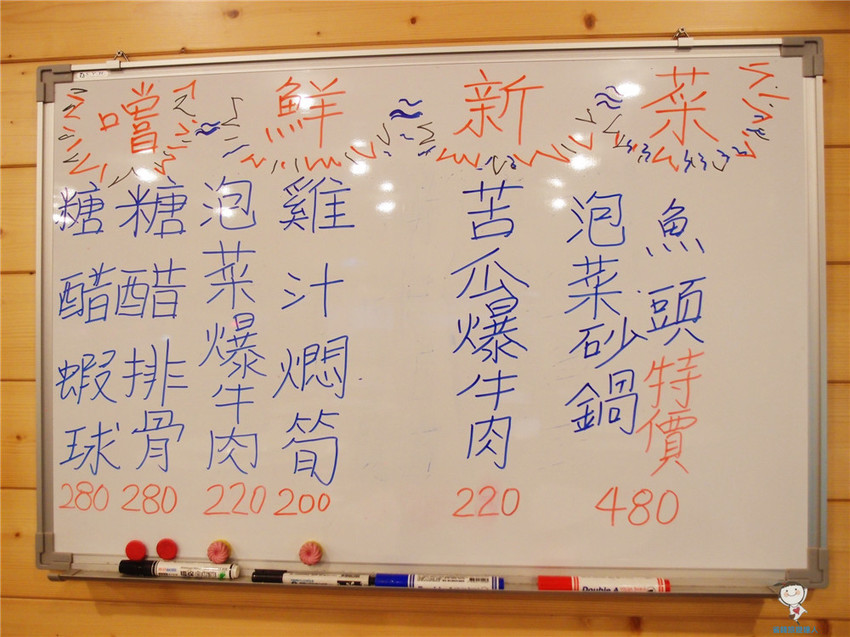 嚐鮮新菜
魚頭特價
泡菜砂鍋
480
苦瓜爆牛肉
220
雞汁燜筍
200
泡菜爆牛肉
220
糖醋排骨
280
糖醋蝦球
280
Double A